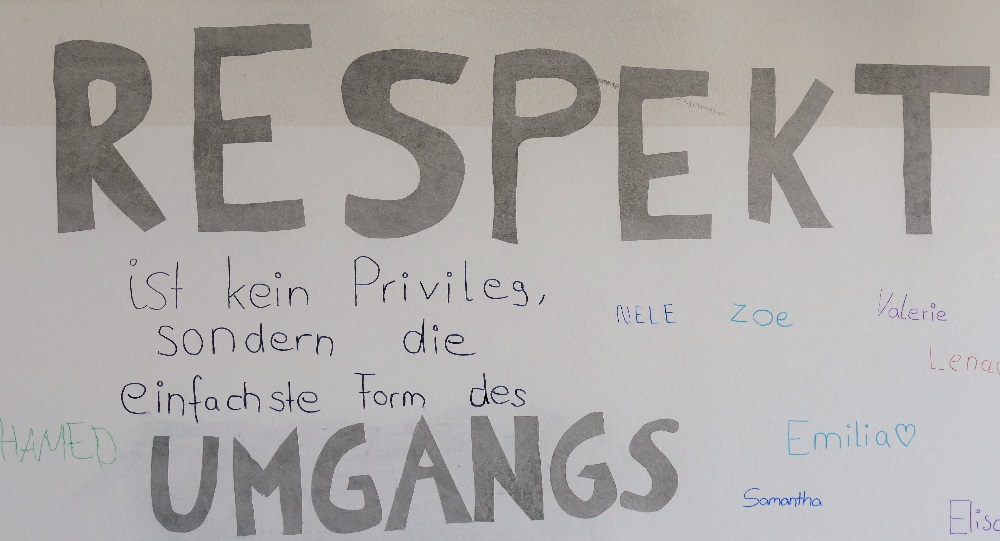 RESPEKT
ist kein Privileg,
sondern die
einfachste Form des
UMGANGS
NELE
Zoe
Valerie
Emilia♡
Samantha